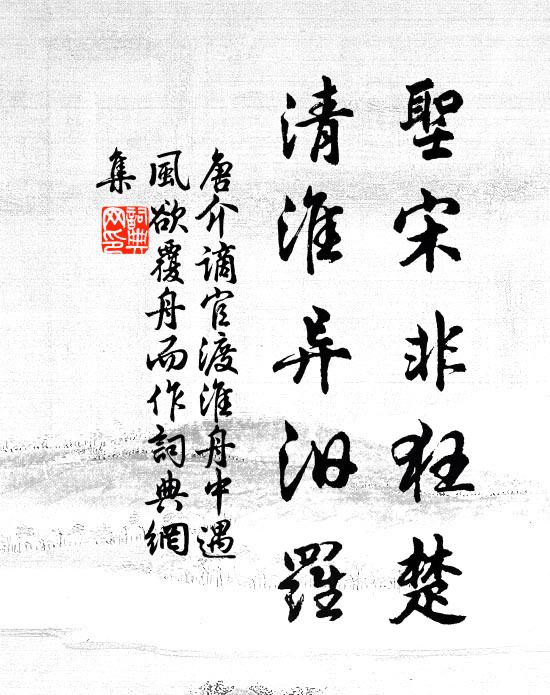 聖宋非狂楚
清淮异汨羅
唐介謫官渡淮舟中遇
風欲覆舟而作詞典網
集
詞典網印